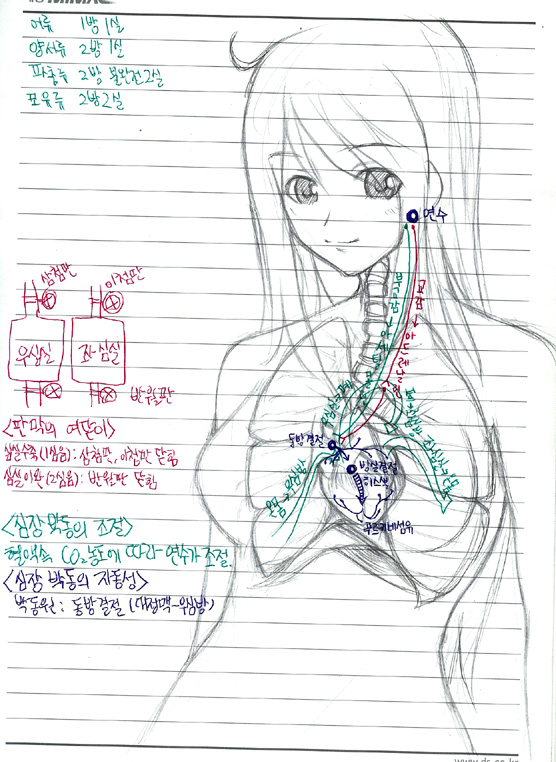 어류 1방 1실
양서류 2방 1실
파충류 2방 불완전2실
포유류 2방 2실
연수
삼첨판
이첨판
우심실
좌심실
반월판
부교감 → 아세틸콜린
교감 → 아드레날린
<판막의 여닫이>
심실수축(1심음): 삼첨판, 이첨판 닫힘
심실이완(2심음): 반월판 닫힘
동방결절
방실결절
히스색
푸르키네섬유
온몸 → 우심방
<심장 박동의 조절>
혈액속 CO₂농도에 따라 연수가 조절.
<심장 박동의 자동성>
박동원: 동방결절 (대정맥-우심방)